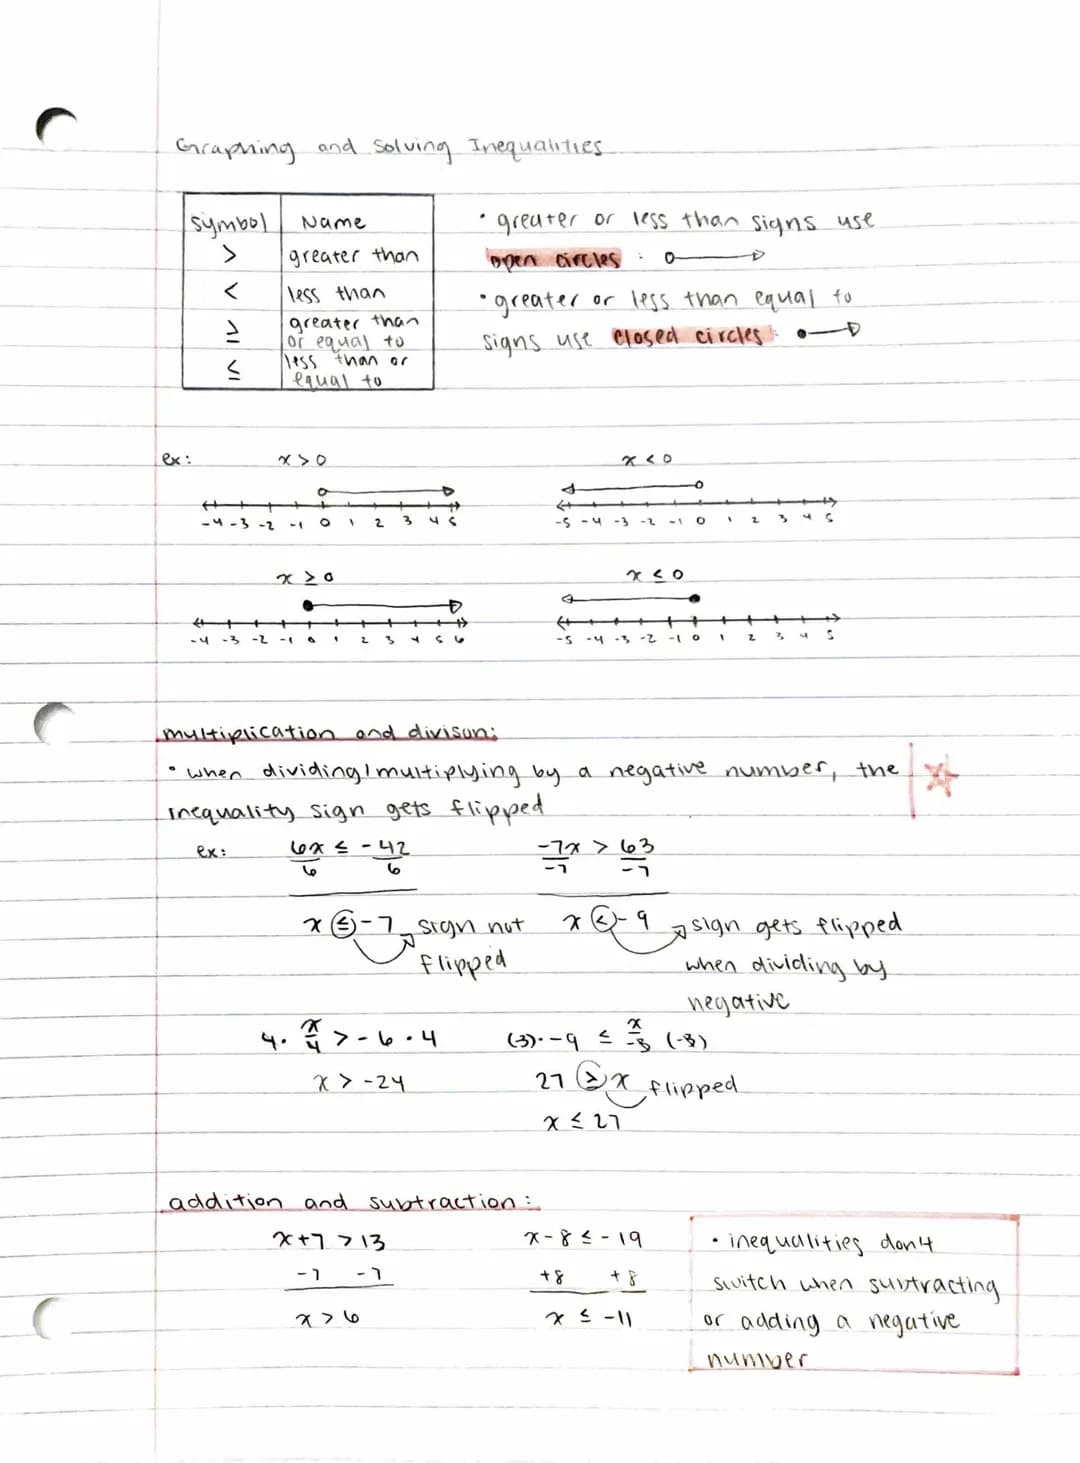 Graphing and Solving Inequalities
symbol Name
> greater than
< less than
≥ greater than
or equal to
≤ less than or
equal to
• greater or less than signs use
open circles :
• greater or less than equal to
signs use closed circles :
ex: x > 0 x < 0
-4 -3 -2 -1 0 1 2 3 4 5 -5 -4 -3 -2 -1 0 1 2 3 4 5
x ≥ 0 x ≤ 0
-4 -3 -2 -1 0 1 2 3 4 5 6 -5 -4 -3 -2 -1 0 1 2 3 4 5
multiplication and divison:
• when dividing/multiplying by a negative number, the
inequality sign gets flipped
ex: 6x ≤ -42 -7x > 63
6 6 -7 -7
x ≤ -7 sign not x < -9 sign gets flipped
flipped when dividing by
negative
4 · x/4 > -6 · 4 (-3) · -9 ≤ x/-3 (-3)
x > -24 27 ≥ x flipped
x ≤ 27
addition and subtraction:
x+7 > 13 x-8 ≤ -19
-7 -7 +8 +8
x > 6 x ≤ -11
• inequalities don't
switch when subtracting
or adding a negative
number